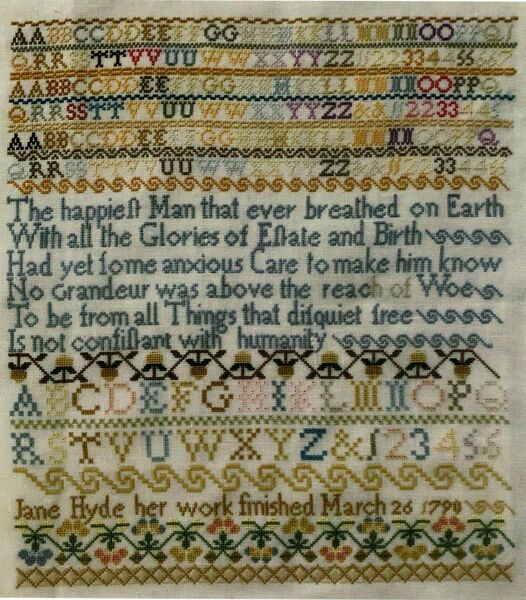 AABBCCDDEEFFGGHHIIKKLLMMNNOOPPQ
QRRSSTTVVUUWWXXYYZZ
AABBCCDDEEFFGGHHIIKKLLMMNNOOPP
QRRSSTTVVUUWWXXYYZZ&&112233445
AABBCCDDEEFFGGHHIIKKLLMMNNOOPPQ
QRRSSTTVVUUWWXXYYZZ
The happieſt Man that ever breathed on Earth
With all the Glories of Eſtate and Birth
Had yet ſome anxious Care to make him know
No Grandeur was above the reach of Woe
To be from all Things that diſquiet free
Is not conſiſtant with humanity
ABCDEFGHIKLMNOPQ
RSTVUWXYZ&123456
Jane Hyde her work finished March 26 1790